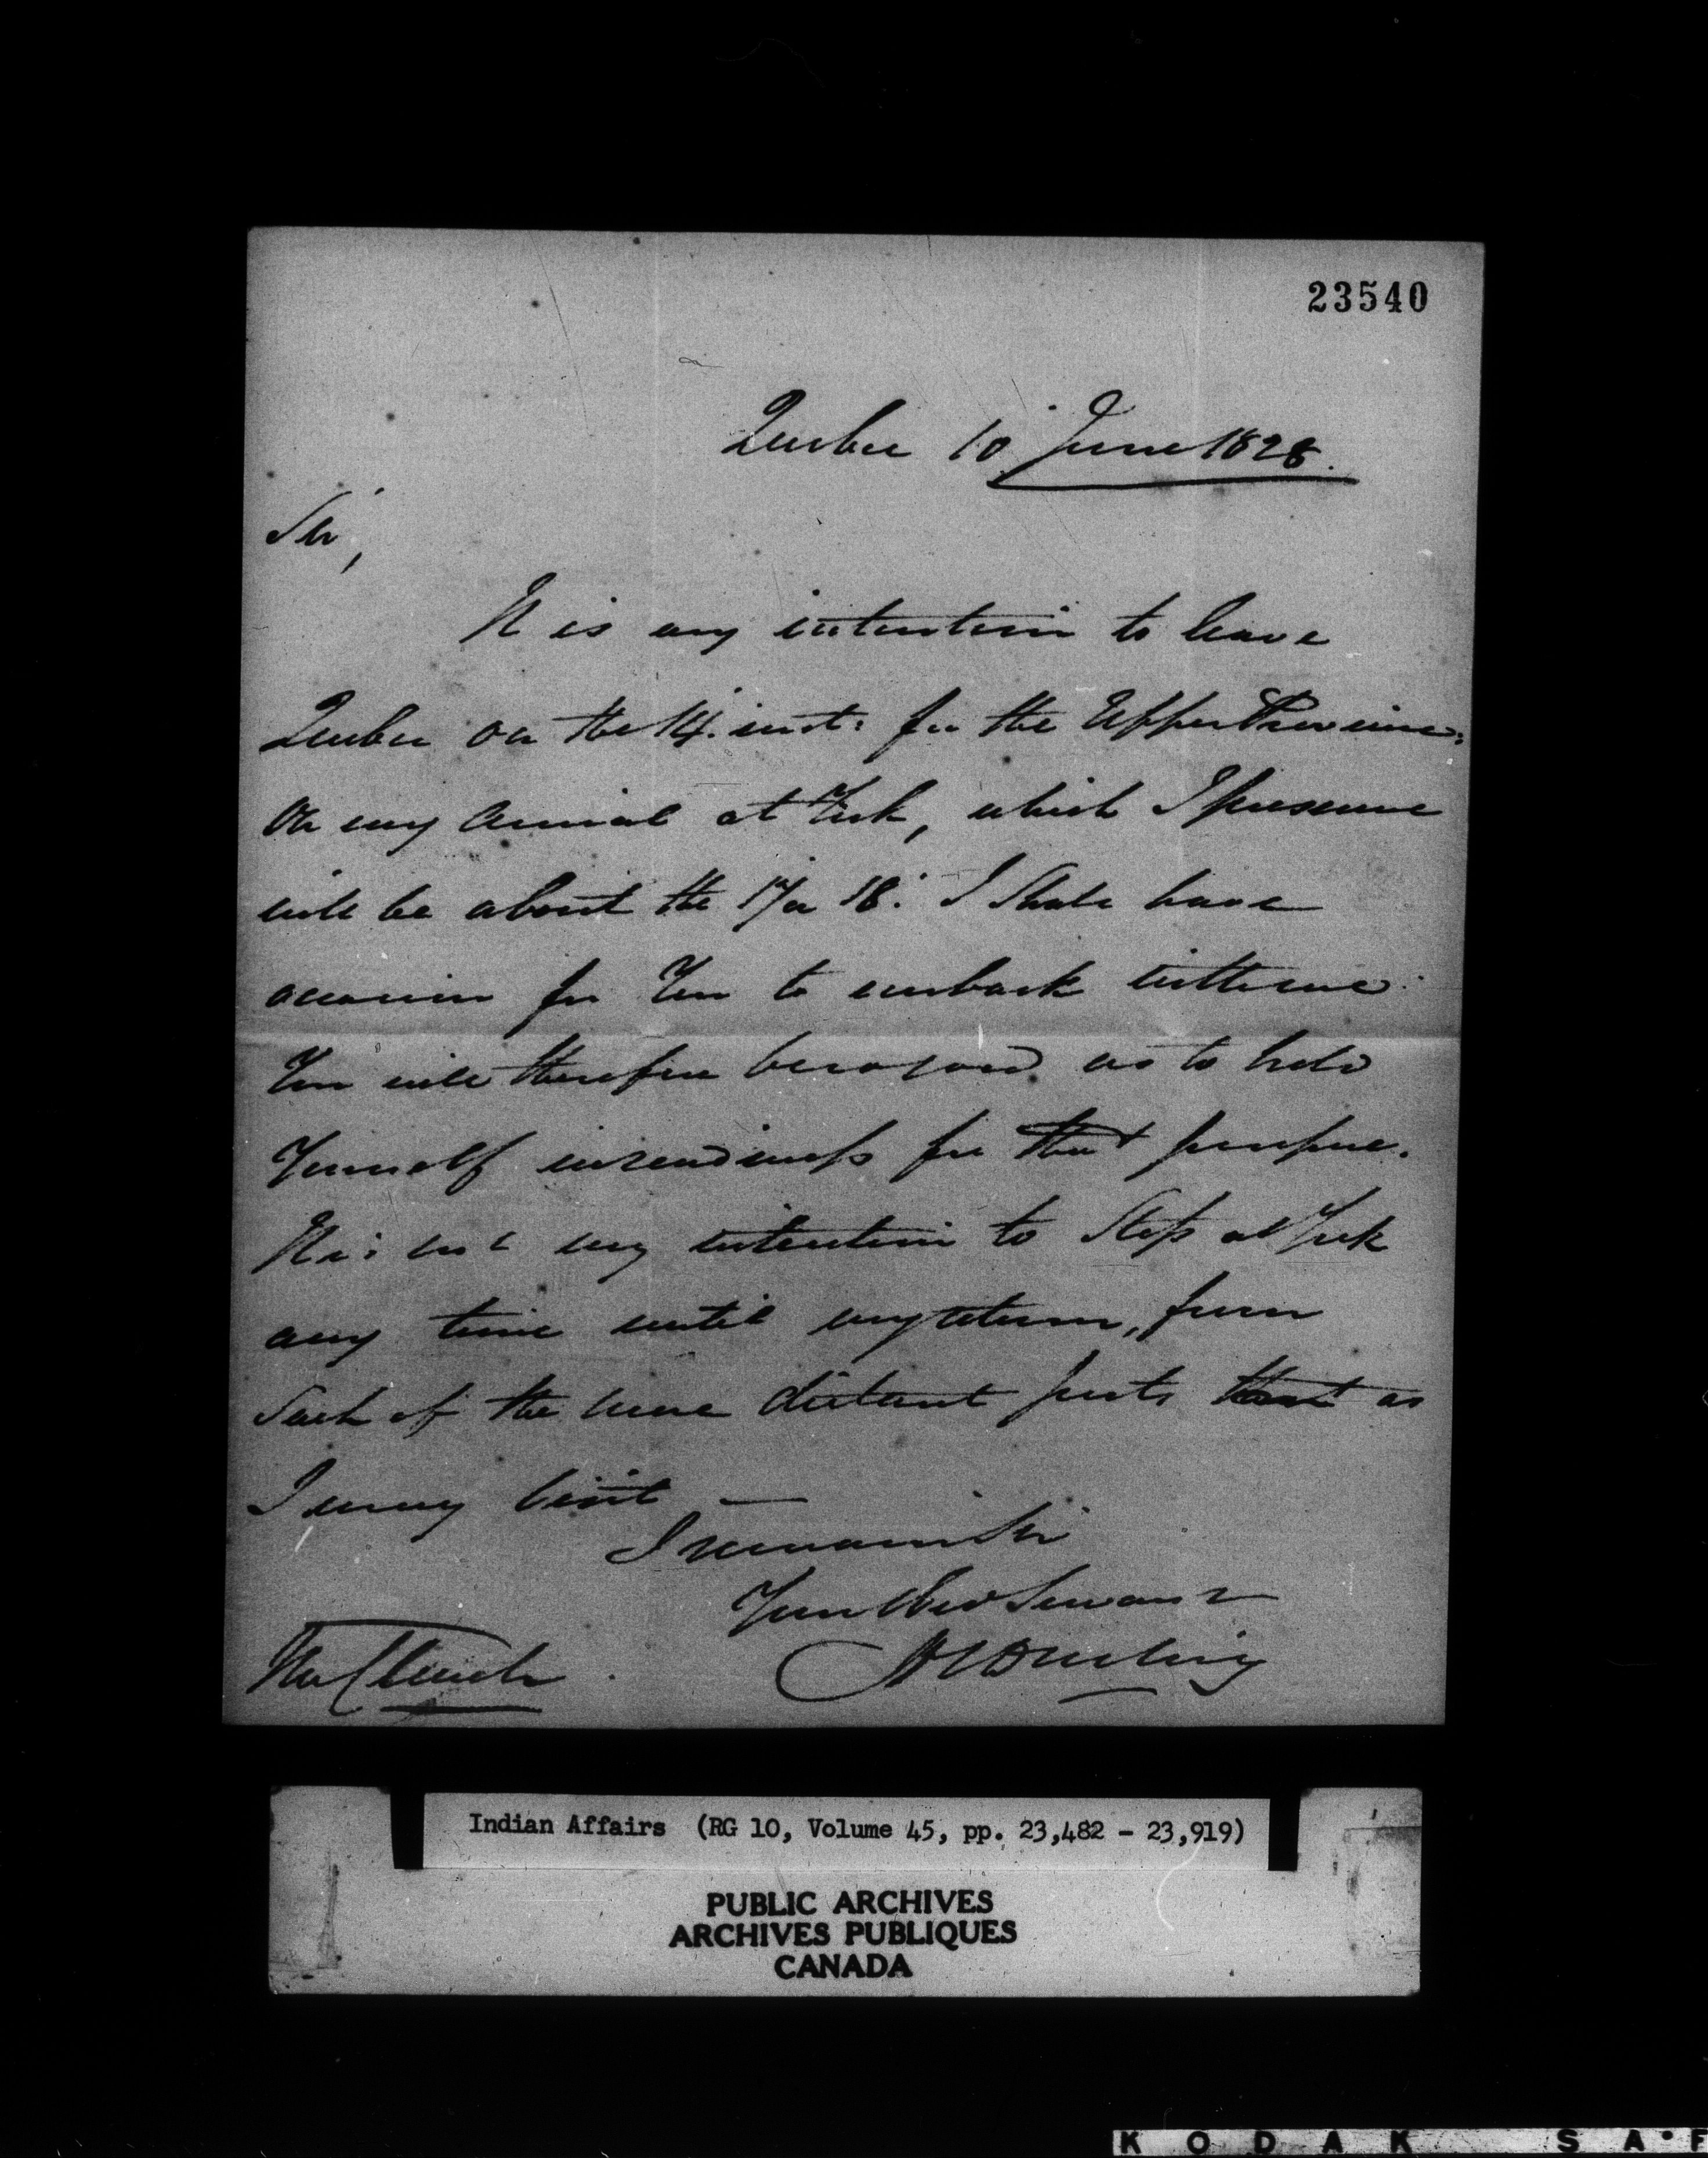 23540
Quebec 10 June 1828.
Sir,
It is my intention to leave
Quebec on the 14. inst: for the Upper Province:
On my arrival at York, which I presume
will be about the 17 or 18. I shall have
occasion for You to embark with me.
You will therefore be so good as to hold
Yourself in readiness for that purpose.
It is not my intention to Stop at York
any time until my return, from
Such of the more distant posts as
I may visit —
I remain Sir
Your Obed Servant
H C Darling
Mr Clench
Indian Affairs (RG 10, Volume 45, pp. 23,482 - 23,919)
PUBLIC ARCHIVES
ARCHIVES PUBLIQUES
CANADA
KODAK SA·F